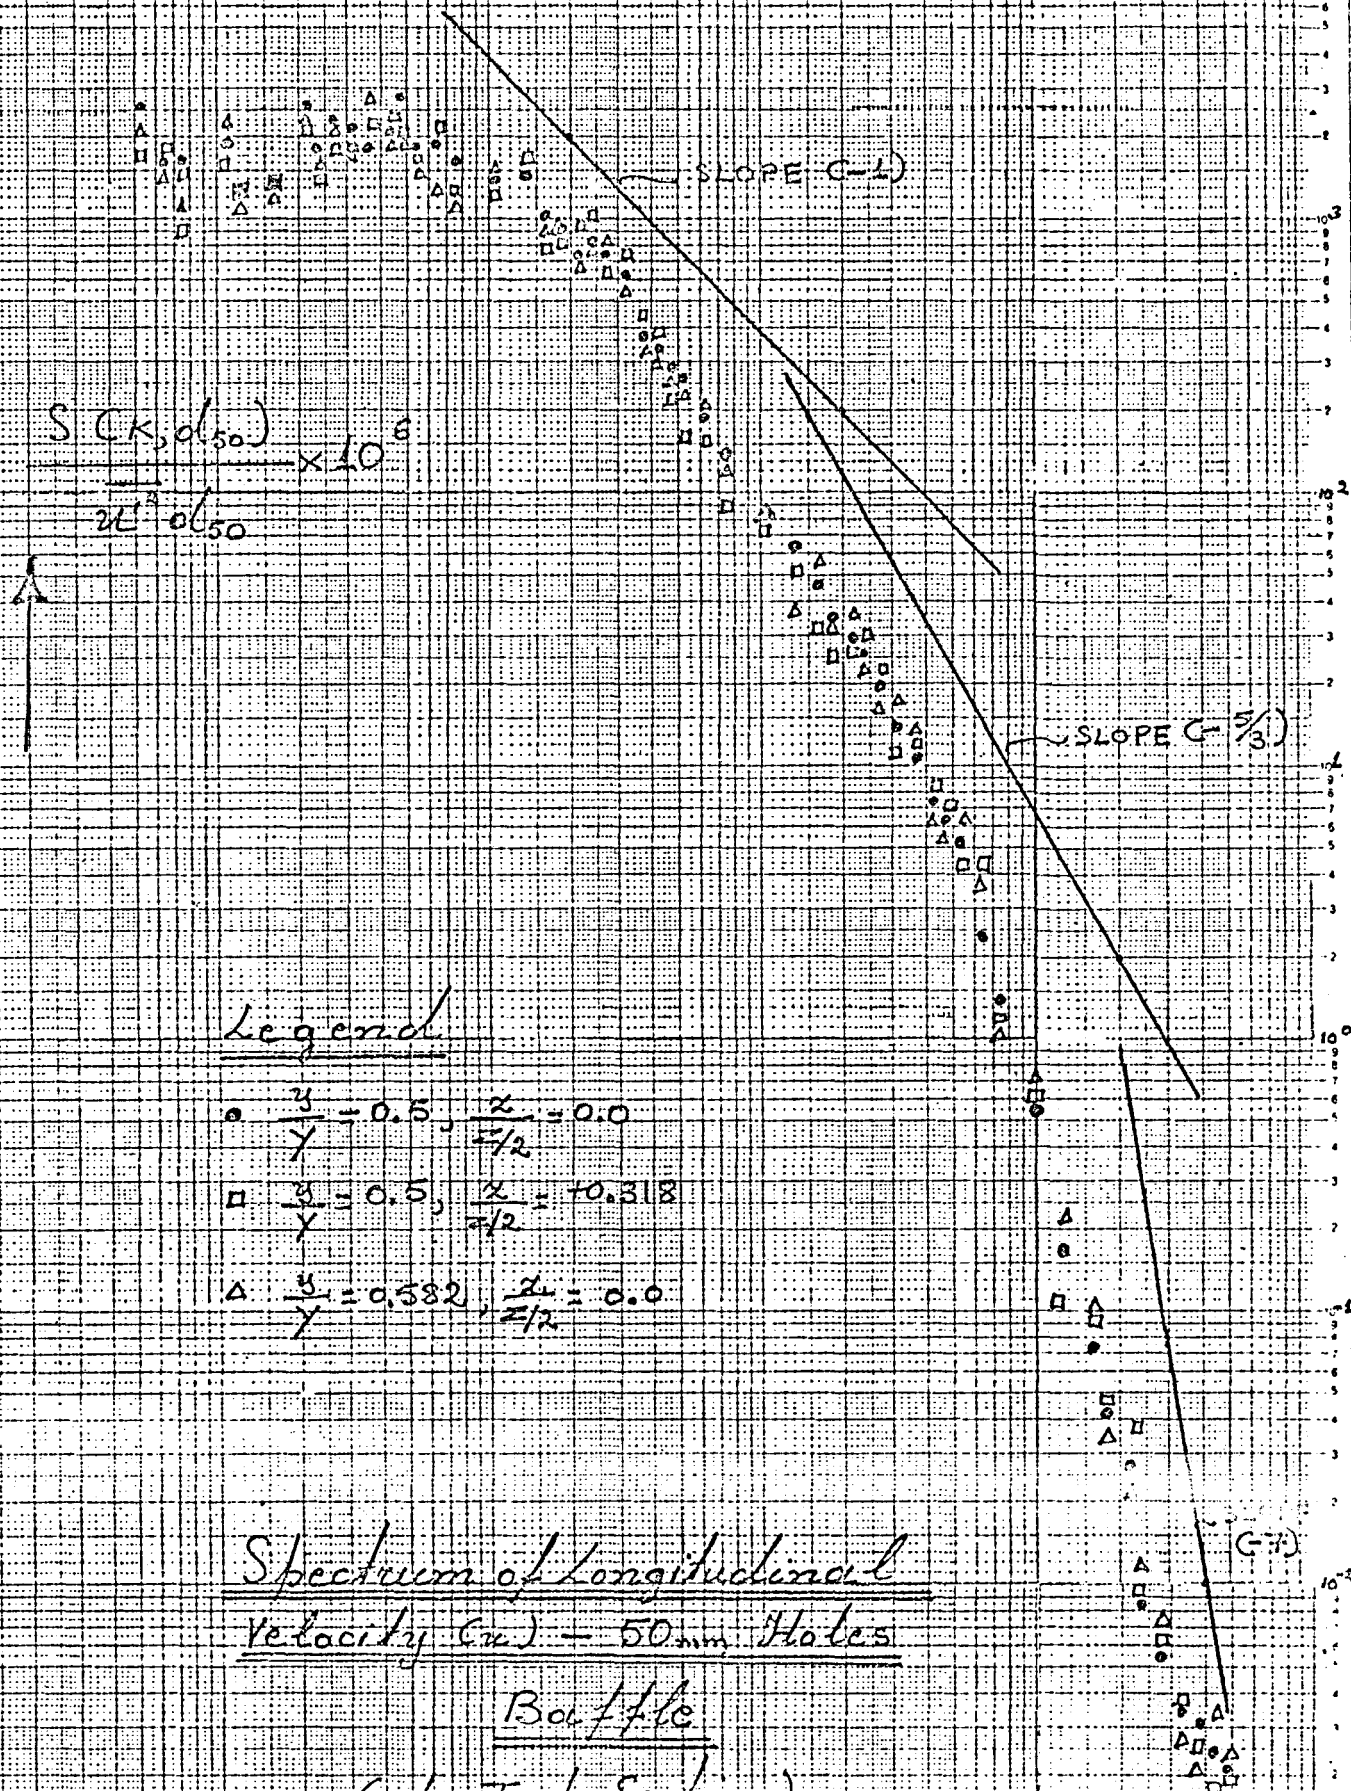 SLOPE (-1)
S (k, d50)
———— × 10^6
u² d50
SLOPE (-5/3)
Legend
• y/Y = 0.5, z/Z/2 = 0.0
□ y/Y = 0.5, z/Z/2 = +0.318
△ y/Y = 0.582, z/Z/2 = 0.0
(-7)
Spectrum of Longitudinal
Velocity (u) - 50mm Holes
Baffle
10^3
10^2
10^1
10^0
10^-1
10^-2